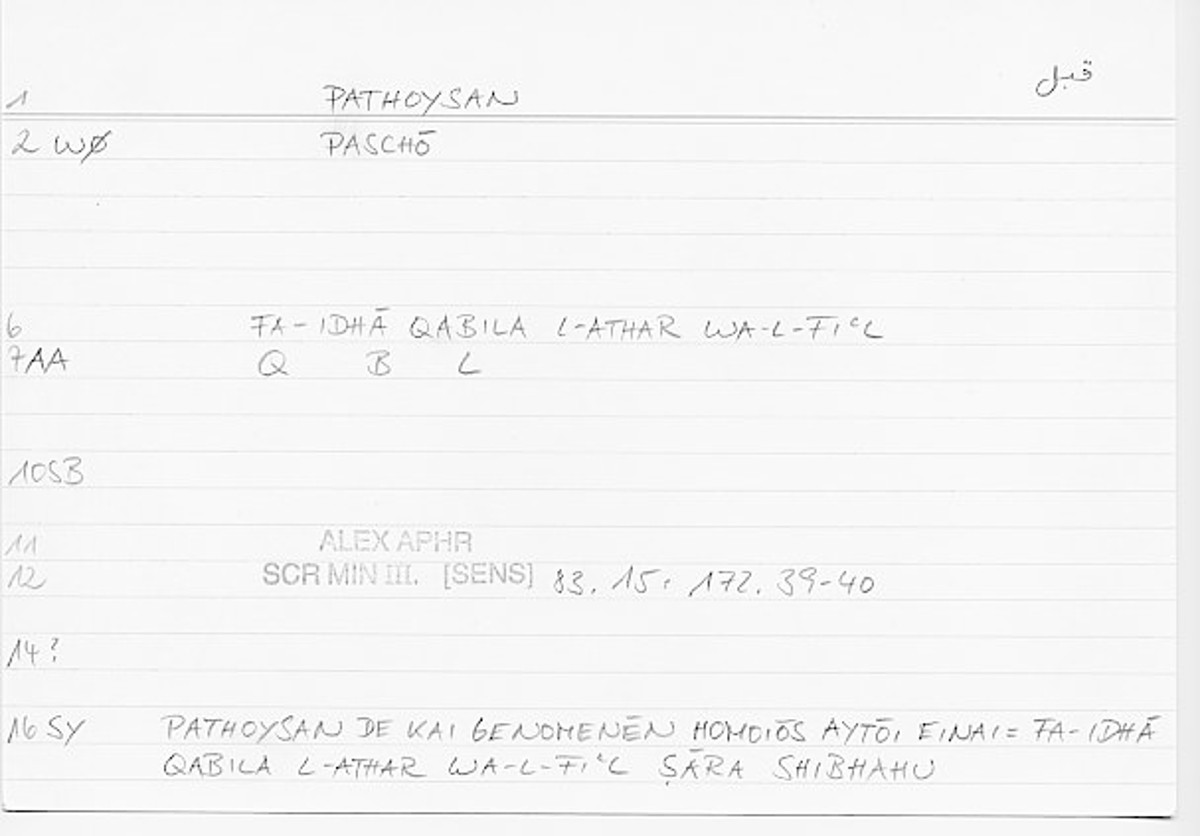 قبل
1 PATHOYSAN
2 WØ PASCHŌ
6 FA-IDHĀ QABILA L-ATHAR WA-L-FIᶜL
7AA Q B L
10SB
11 ALEX APHR
12 SCR MIN III. [SENS] 83. 15: 172. 39-40
14?
16 SY PATHOYSAN DE KAI GENOMENĒN HOMOIŌS AYTŌI EINAI = FA-IDHĀ
QABILA L-ATHAR WA-L-FIᶜL ṢĀRA SHIBHAHU